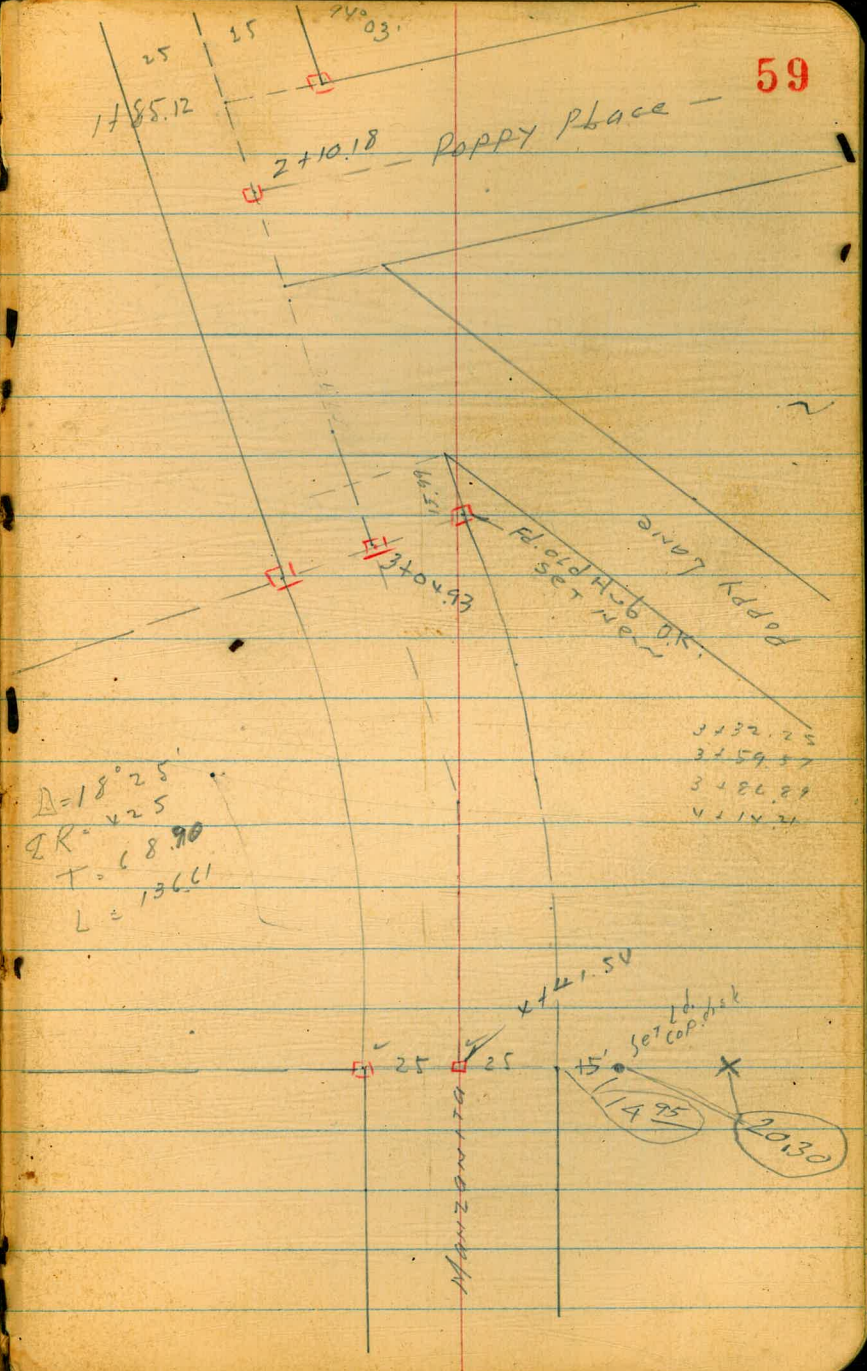 59
25
25
94° 03'
1+85.12
2+10.18
Poppy Place
15.99
3+04.93
Fd. old Hub O.K.
Set New
Poppy Lane
3+32.25
3+59.57
3+86.89
4+14.21
Δ=18°25'
R=425
T=68.90
L=136.61
4+41.54
25
25
+5'
Set Ld.
Cop. disk
14 95
20.30
MANZONITA